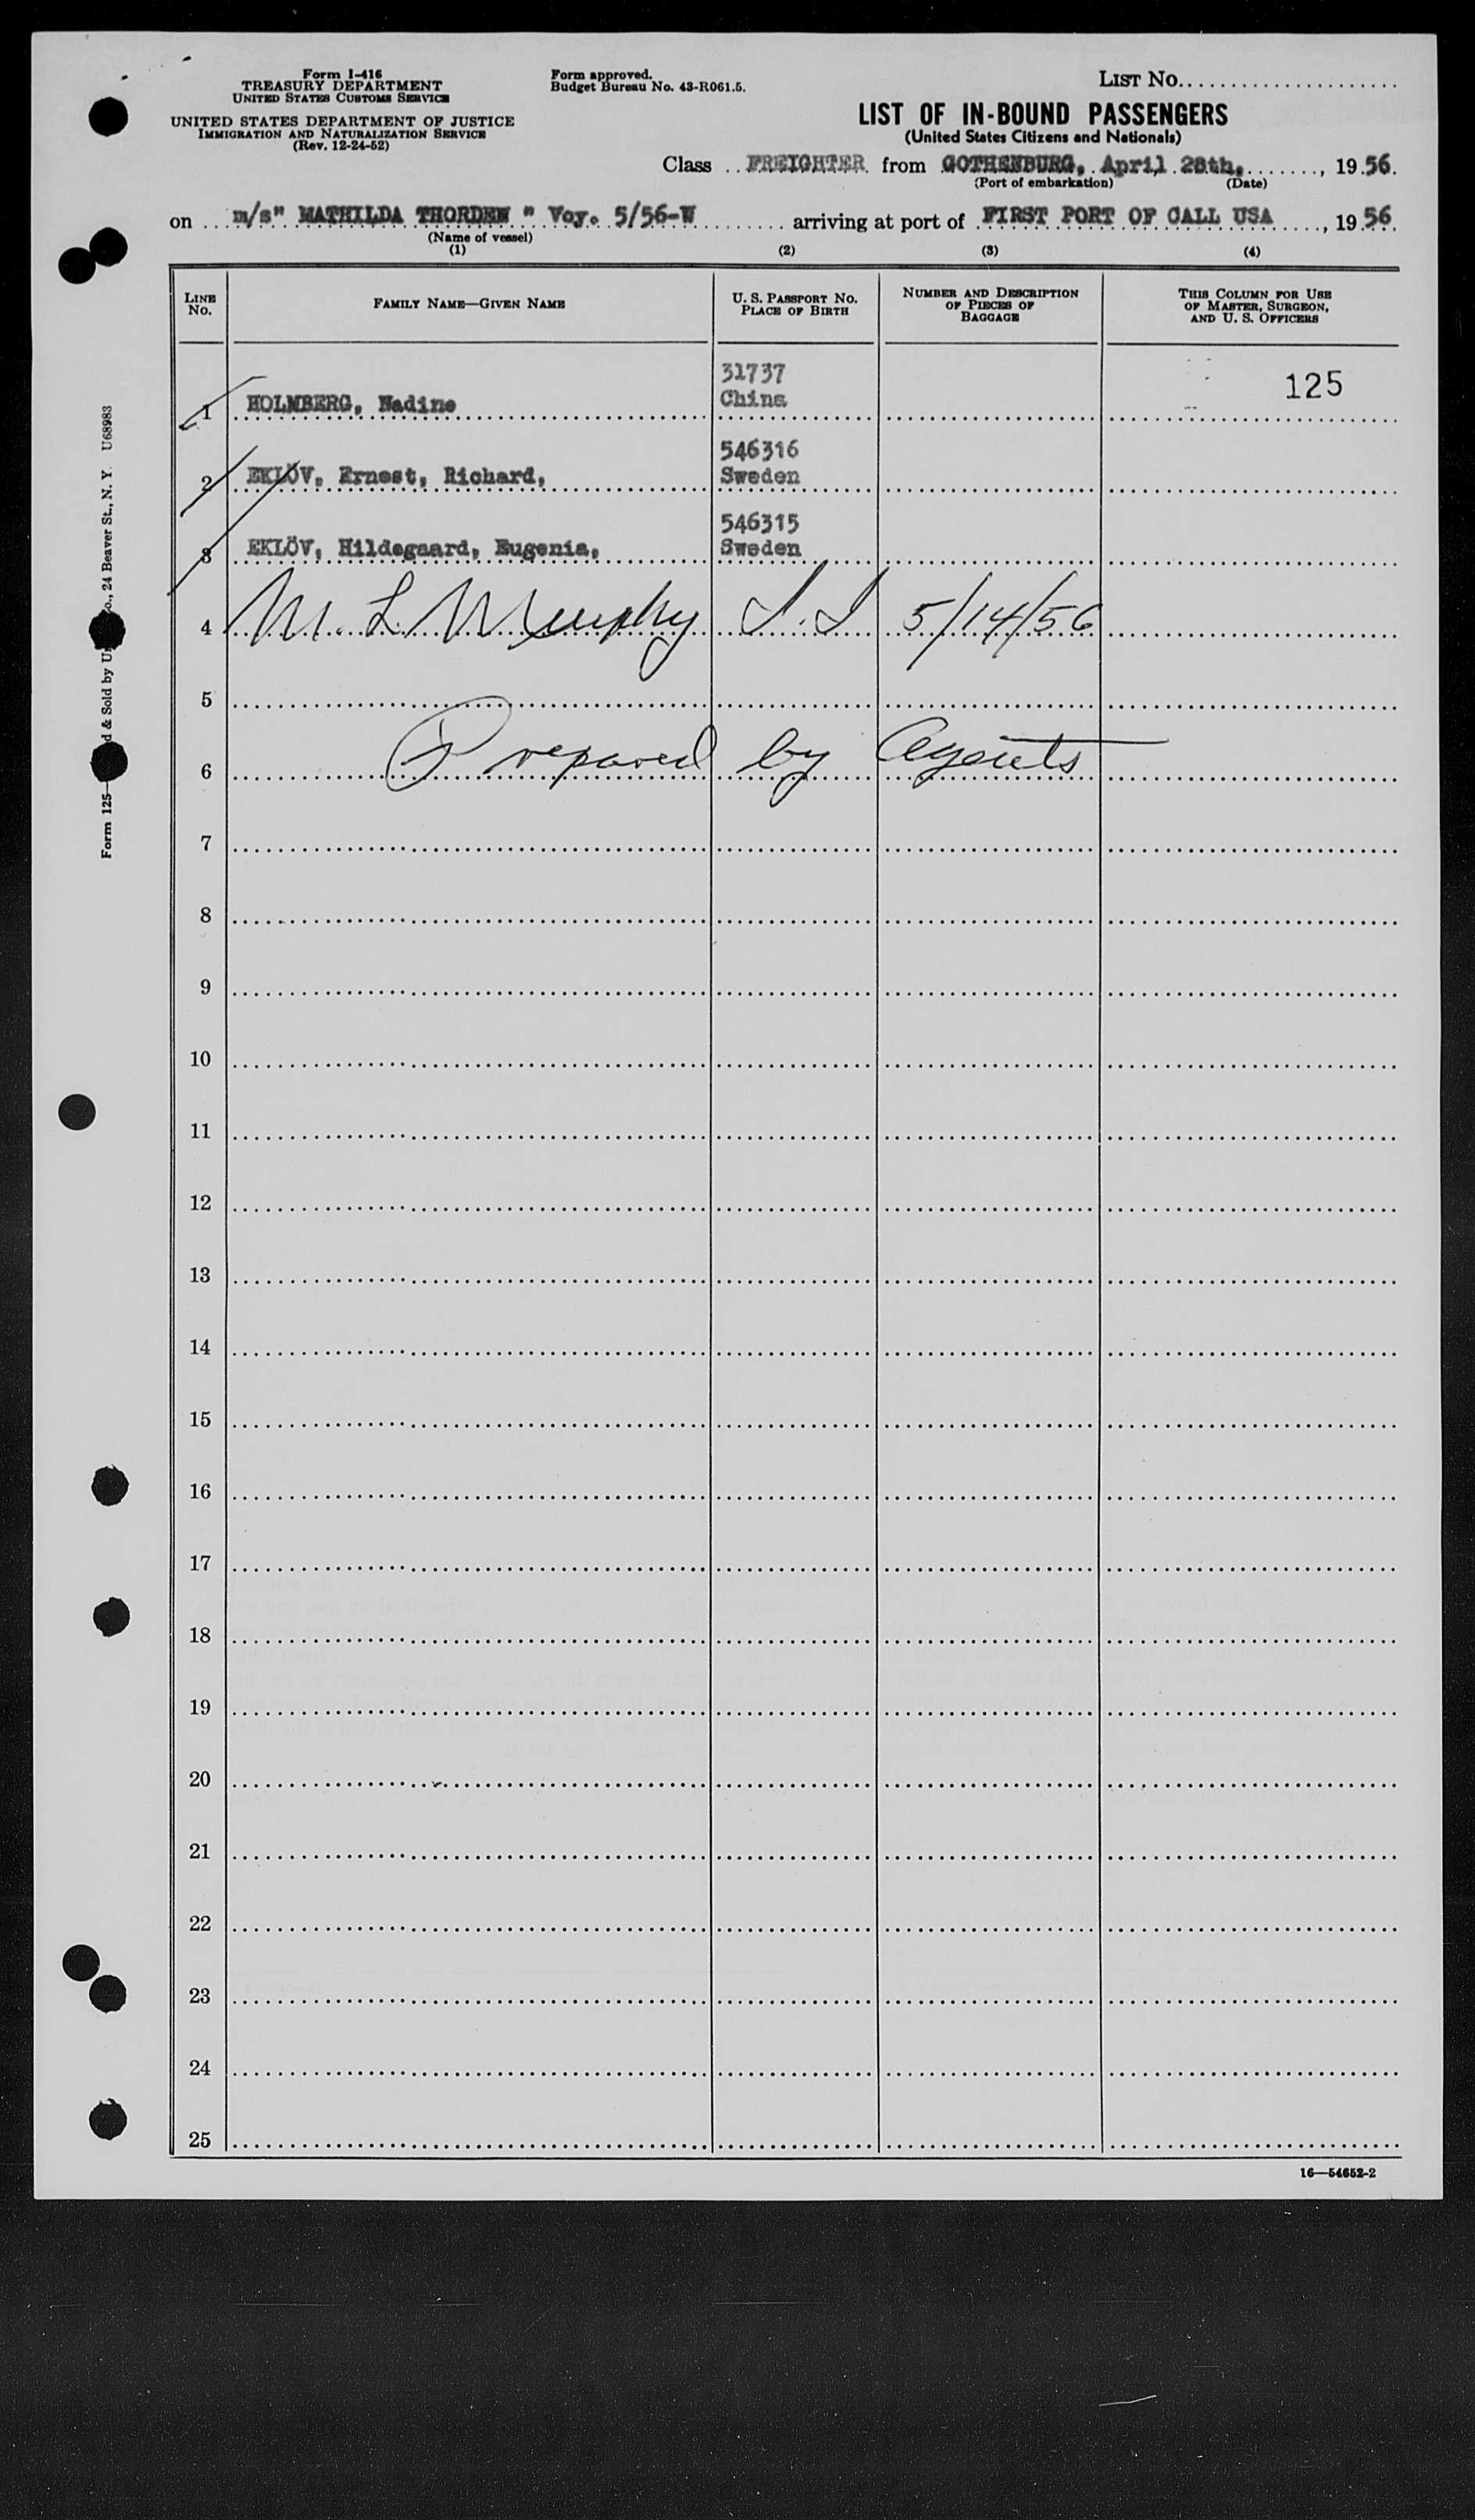 Form I-416
TREASURY DEPARTMENT
UNITED STATES CUSTOMS SERVICE
UNITED STATES DEPARTMENT OF JUSTICE
IMMIGRATION AND NATURALIZATION SERVICE
(Rev. 12-24-52)
Form approved.
Budget Bureau No. 43-R061.5.
LIST NO.
LIST OF IN-BOUND PASSENGERS
(United States Citizens and Nationals)
Class FREIGHTER from GOTHENBURG, April 28th, , 1956.
(Port of embarkation) (Date)
on m/s" MATHILDA THORDEN " Voy. 5/56-W arriving at port of FIRST PORT OF CALL USA , 1956.
(Name of vessel)
(1) (2) (3) (4)
LINE NO.
FAMILY NAME—GIVEN NAME
U. S. PASSPORT NO.
PLACE OF BIRTH
NUMBER AND DESCRIPTION
OF PIECES OF
BAGGAGE
THIS COLUMN FOR USE
OF MASTER, SURGEON,
AND U. S. OFFICERS
31737
1 HOLMBERG, Nadine China 125
546316
2 EKLÖV, Ernest, Richard, Sweden
546315
3 EKLÖV, Hildegaard, Eugenia, Sweden
4 M. L. Murphy I.I 5/14/56
5
6 Prepared by Agents
7
8
9
10
11
12
13
14
15
16
17
18
19
20
21
22
23
24
25
16—54652-2
Form 125— d & Sold by o., 24 Beaver St., N. Y. U68983